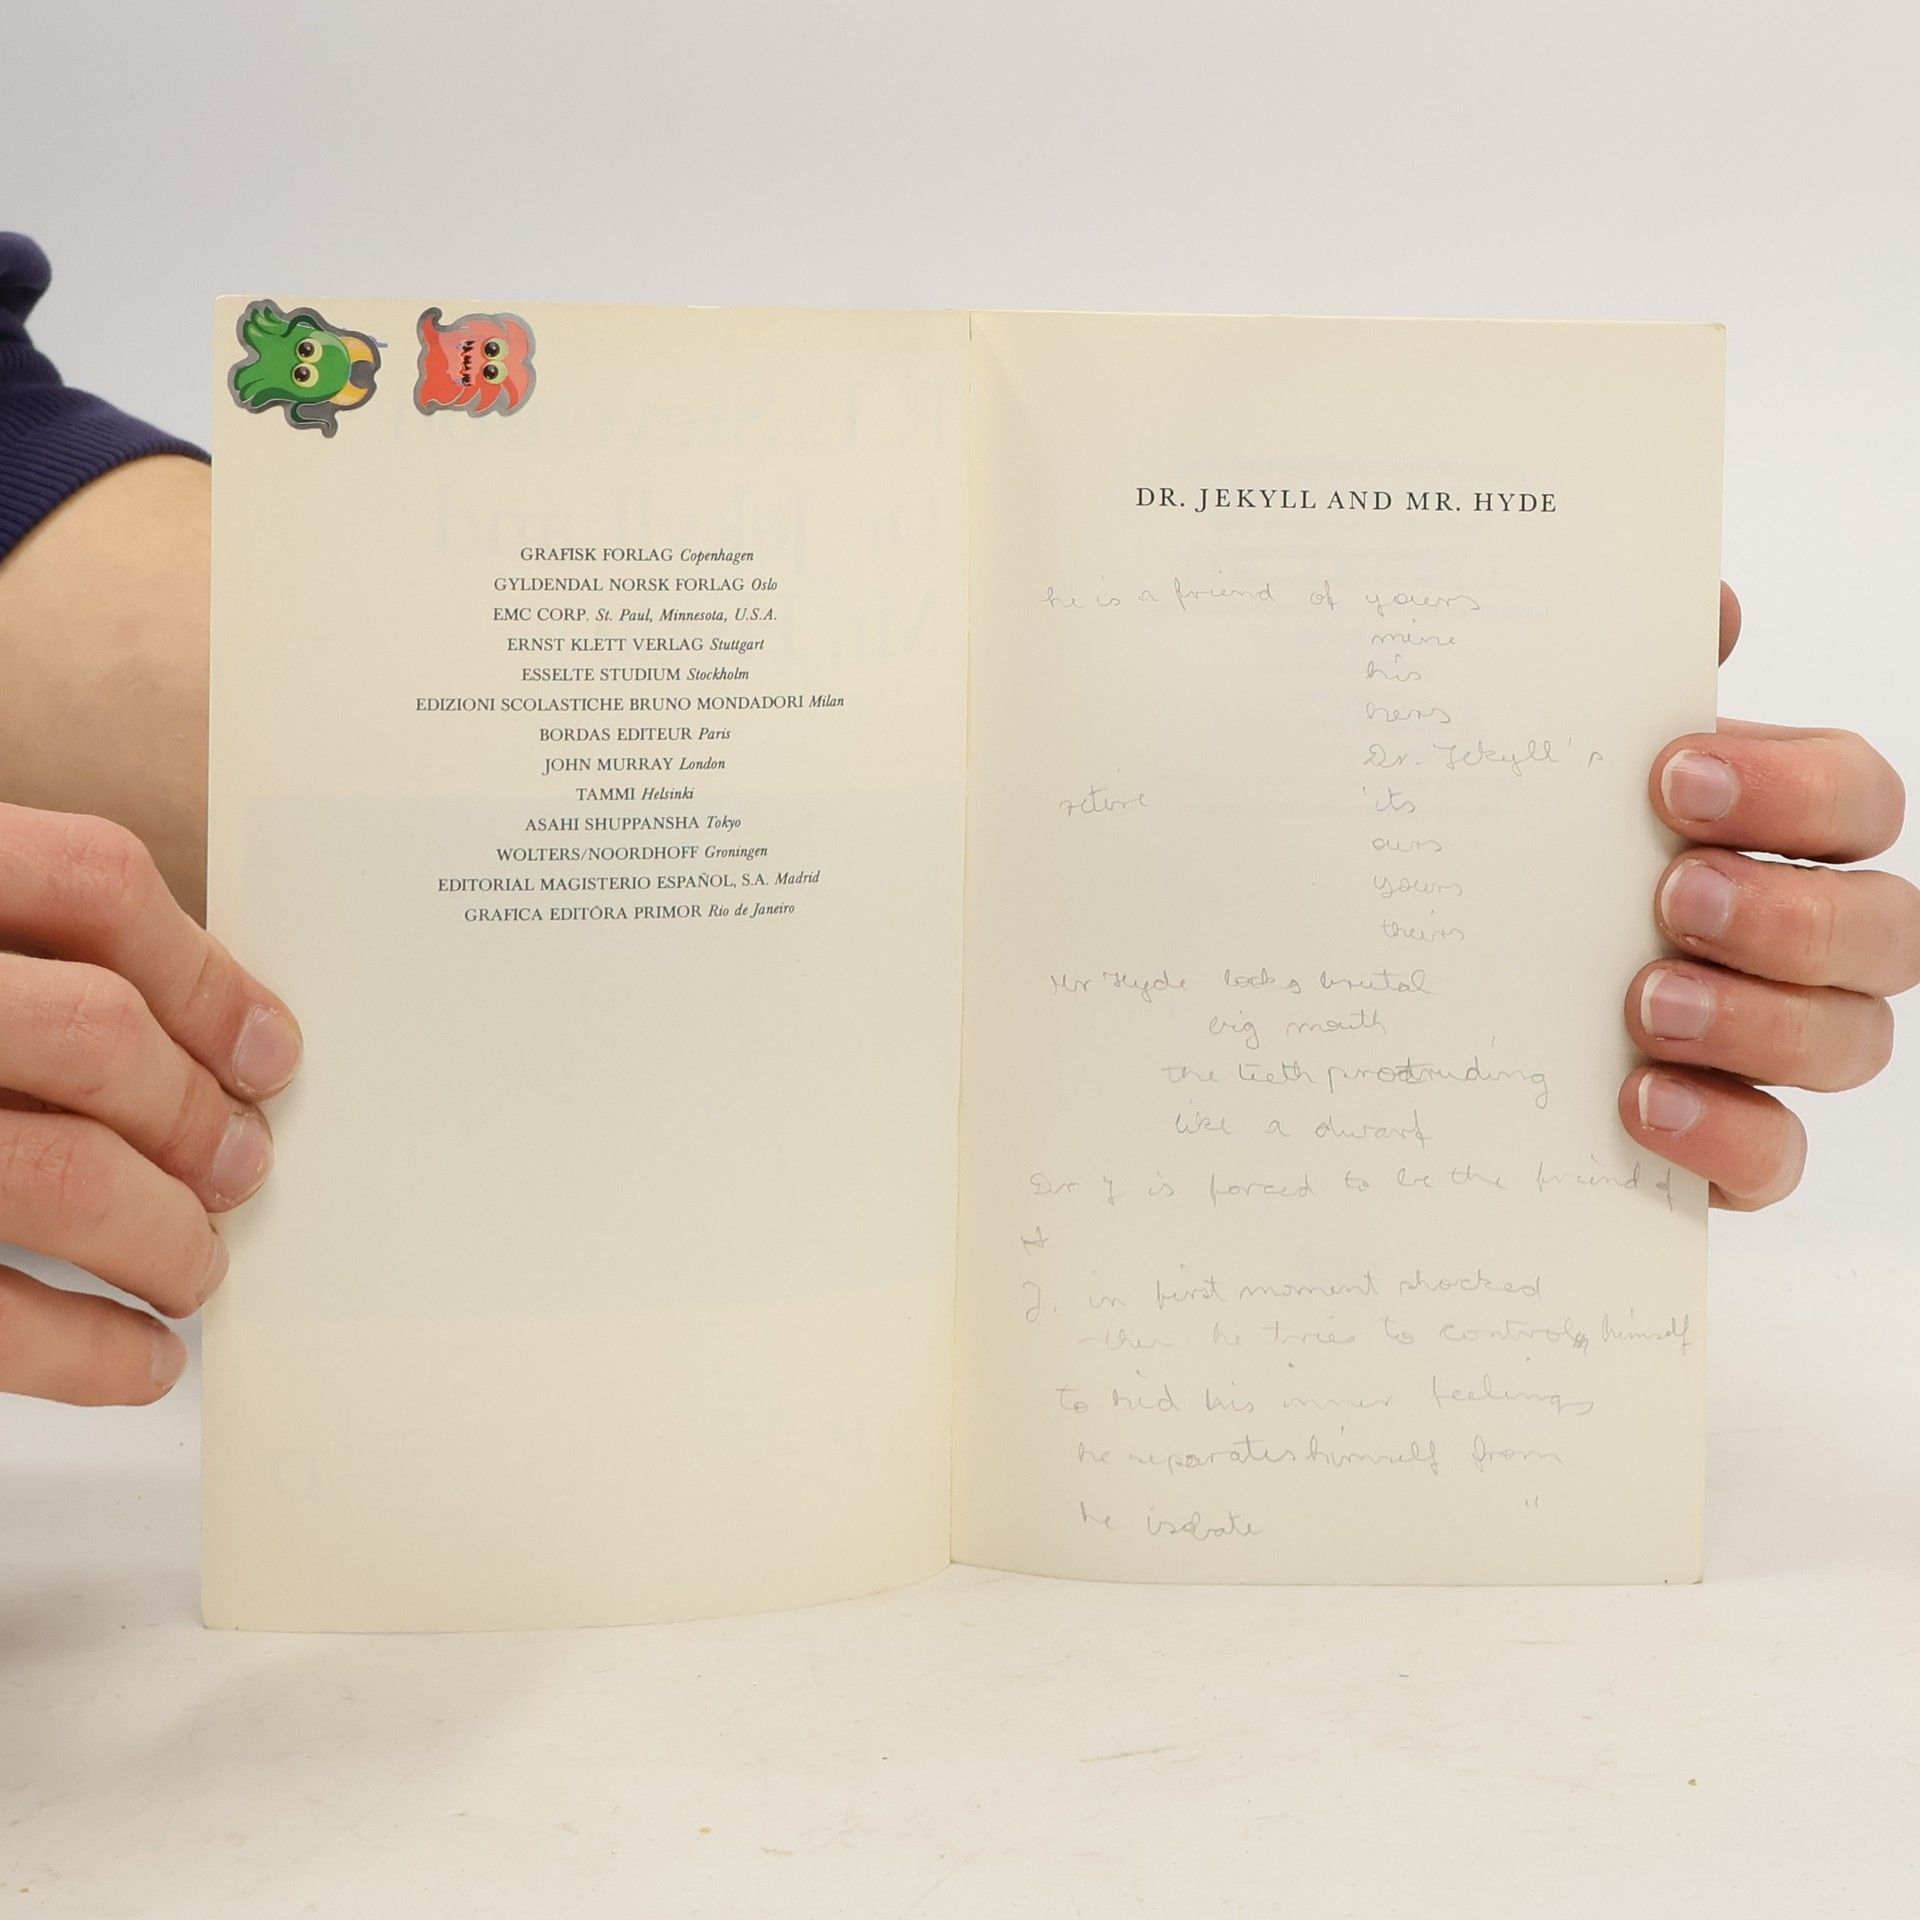 GRAFISK FORLAG Copenhagen
GYLDENDAL NORSK FORLAG Oslo
EMC CORP. St. Paul, Minnesota, U.S.A.
ERNST KLETT VERLAG Stuttgart
ESSELTE STUDIUM Stockholm
EDIZIONI SCOLASTICHE BRUNO MONDADORI Milan
BORDAS EDITEUR Paris
JOHN MURRAY London
TAMMI Helsinki
ASAHI SHUPPANSHA Tokyo
WOLTERS/NOORDHOFF Groningen
EDITORIAL MAGISTERIO ESPAÑOL, S.A. Madrid
GRAFICA EDITÔRA PRIMOR Rio de Janeiro
DR. JEKYLL AND MR. HYDE
he is a friend of yours
mine
his
hers
Dr. Jekyll's
retire its
ours
yours
theirs
Mr Hyde looks brutal
big mouth
the teeth protruding
like a dwarf
Dr J is forced to be the friend of
H
J. in first moment shocked
then he tries to control himself
to hid his inner feelings
he separates himself from
he isolate "